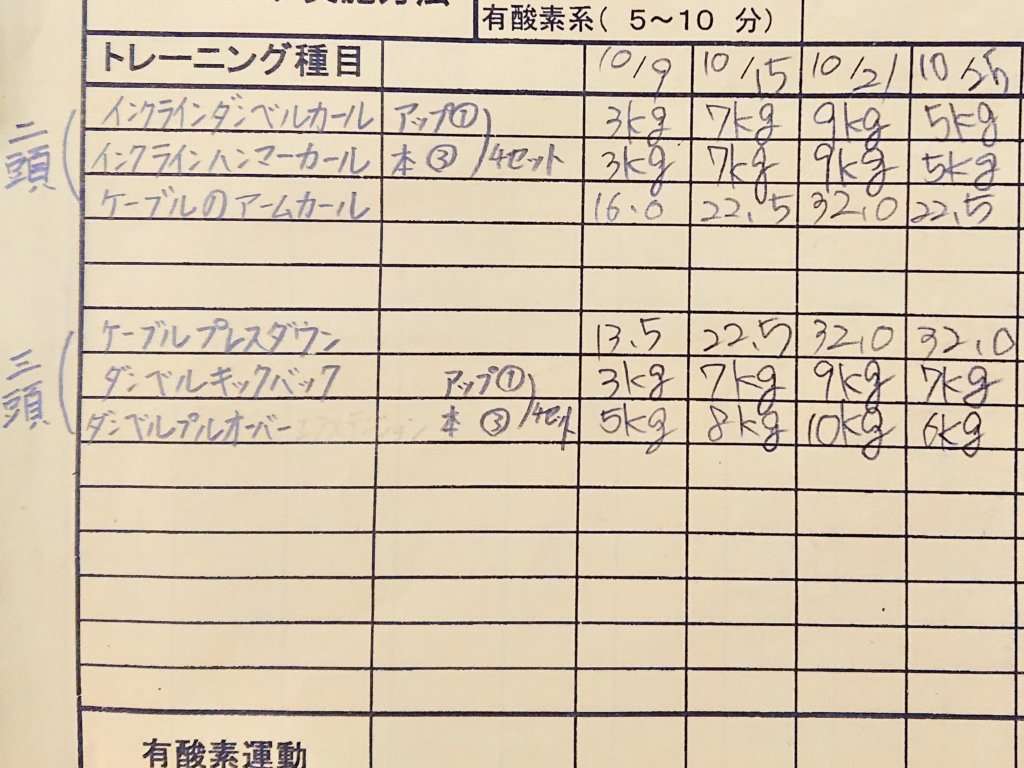 有酸素系( 5～10 分)
トレーニング種目 10/9 10/15 10/21
二頭
インクラインダンベルカール アップ① 3kg 7kg 9kg 5kg
インクラインハンマーカール 本③ 4セット 3kg 7kg 9kg 5kg
ケーブルのアームカール 16.0 22.5 32.0 22.5
三頭
ケーブルプレスダウン 13.5 22.5 32.0 32.0
ダンベルキックバック アップ① 3kg 7kg 9kg 7kg
ダンベルプルオーバー 本③ 4セット 5kg 8kg 10kg 6kg
有酸素運動